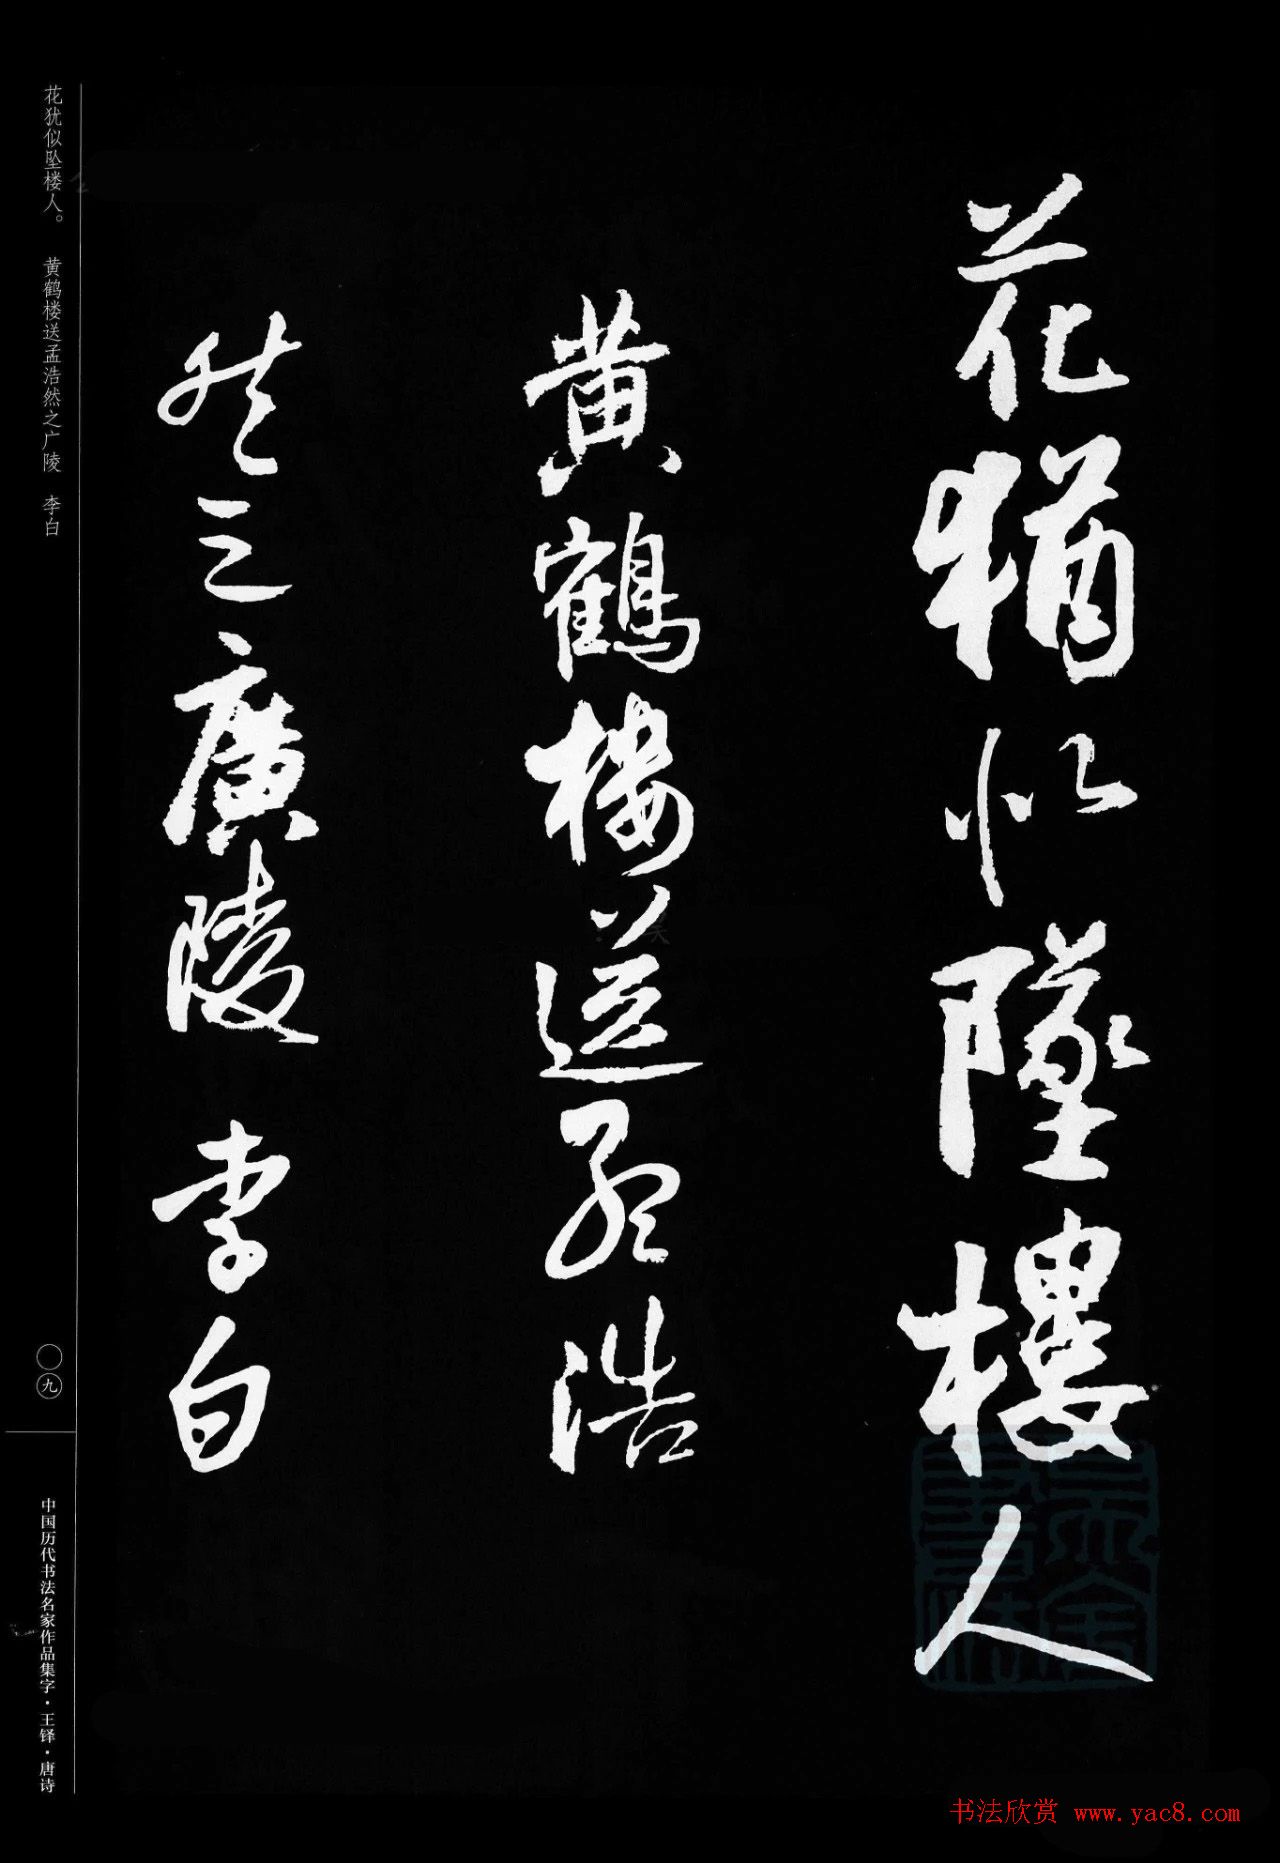 花猶似墜樓人
黄鶴樓送孟浩
然之廣陵 李白
花犹似坠楼人。 黄鹤楼送孟浩然之广陵 李白
〇九
中国历代书法名家作品集字·王铎·唐诗
书法欣赏 www.yac8.com